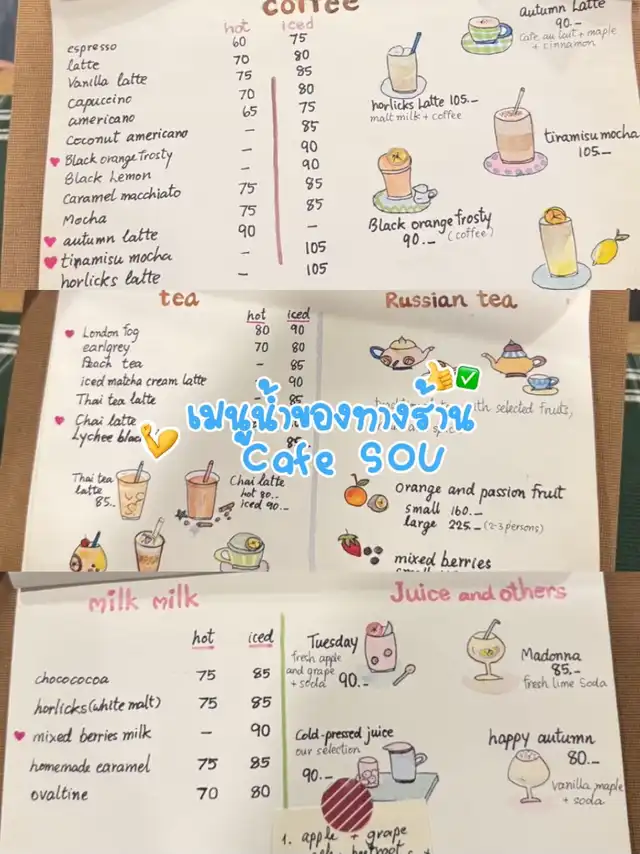 coffee
hot iced
espresso 60 75
latte 70 80
Vanilla latte 75 85
Capuccino 70 80
americano 65 75
Coconut americano – 85
Black orange frosty – 90
Black Lemon – 90
Caramel macchiato 75 85
Mocha 75 85
autumn latte 90 –
tiramisu mocha – 105
horlicks latte – 105
autumn Latte
90.–
Cafe au lait + maple
+ cinnamon
horlicks Latte 105.–
malt milk + coffee
tiramisu mocha
105.–
Black orange frosty
90.– (coffee)
tea
hot iced
London fog 80 90
earlgrey 70 80
Peach tea – 85
iced matcha cream latte – 90
Thai tea latte – 85
Chai latte
Lychee 85.
Thai tea
latte
85..
Chai latte
hot 80..
iced 90.–
Russian tea
with selected fruits,
เมนูน้ำของทางร้าน
Cafe SOU
orange and passion fruit
small 160.–
large 225.– (2-3 persons)
mixed berries
milk milk
hot iced
chocococoa 75 85
horlicks (white malt) 75 85
mixed berries milk – 90
homemade caramel 75 85
ovaltine 70 80
Juice and others
Tuesday
fresh apple
and grape
+ soda 90.–
Madonna
85.–
fresh lime Soda
Cold-pressed juice
our selection
90.–
happy autumn
80.–
vanilla, maple
+ soda
1. apple + grape